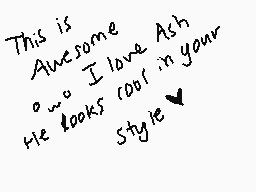 This is
Awesome
owo I love Ash
He looks cool in your
style ♥